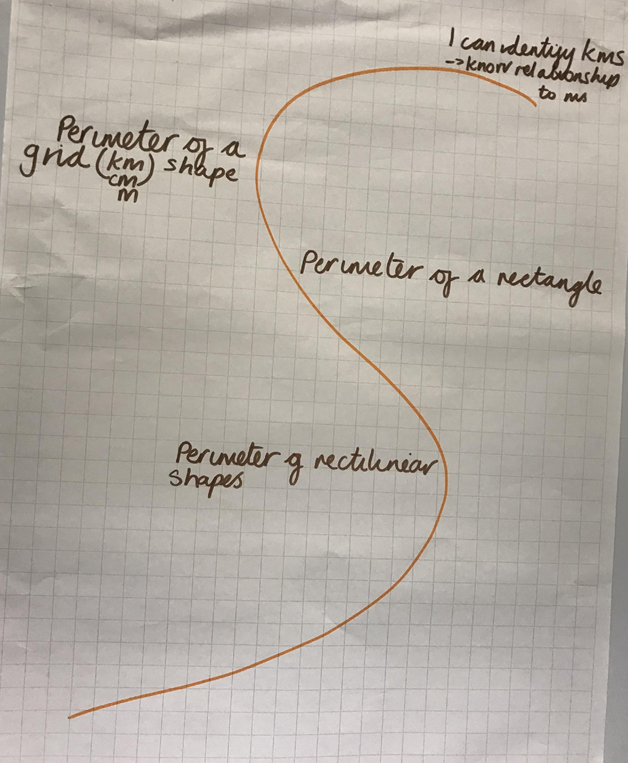 I can identify kms
-> know relationship
to ms
Perimeter of a
grid (km) shape
cm
m
Perimeter of a rectangle
Perimeter of rectilinear
shapes